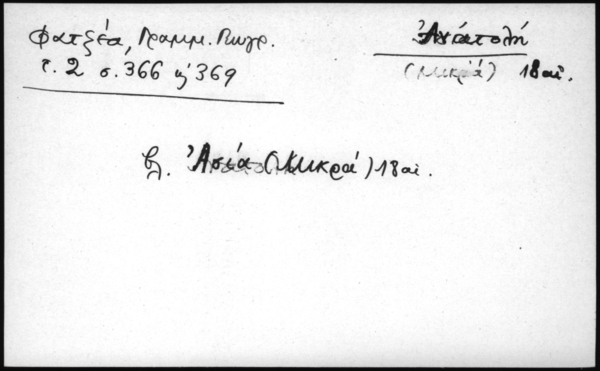 Φατζέα, Γραμμ. Γεωγρ.
τ. 2 σ. 366 κ' 369
Ἀνατολή
(Μικρά) 18 αἰ.
βλ. Ἀσία (Μικρά) 18 αἰ.